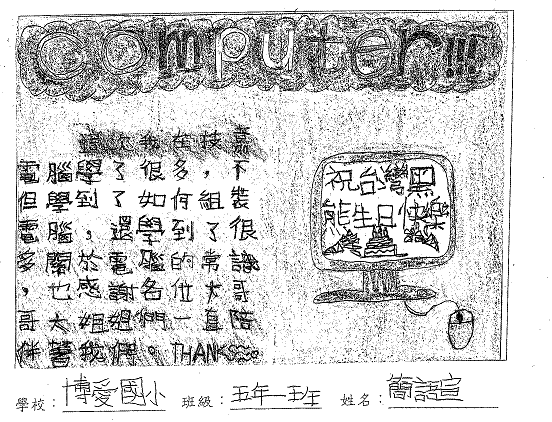 Computer!!!
這次我在技嘉
電腦學了很多，不
但學到了如何組裝
電腦，還學到了很
多關於電腦的常識
，也感謝各位大哥
哥大姐姐們一直陪
伴著我們。THANKS~~
祝台灣黑
熊生日快樂
學校：博愛國小 班級：五年一班 姓名：簡語宣